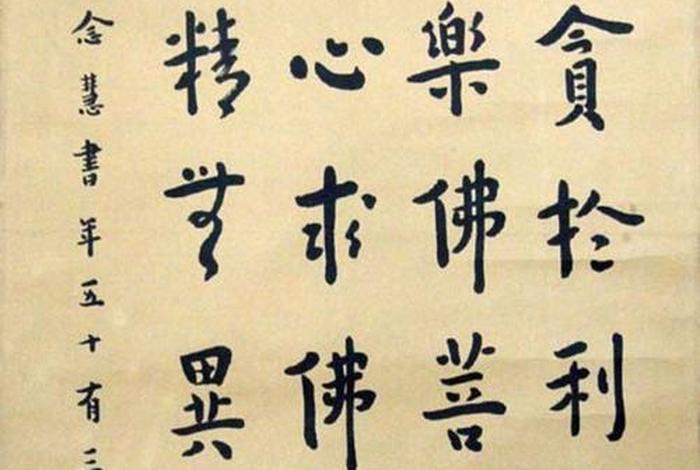 貪於利
樂佛菩
心求佛
精無異
念慧書年五十有三